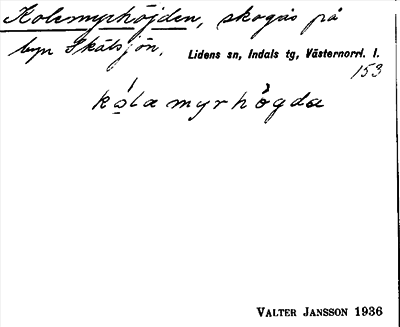 Kolemyrhöjden, skogås på
byn Skälsjön.
Lidens sn, Indals tg, Västernorrl. l.
153
kǻlamyrhö̀gda
VALTER JANSSON 1936